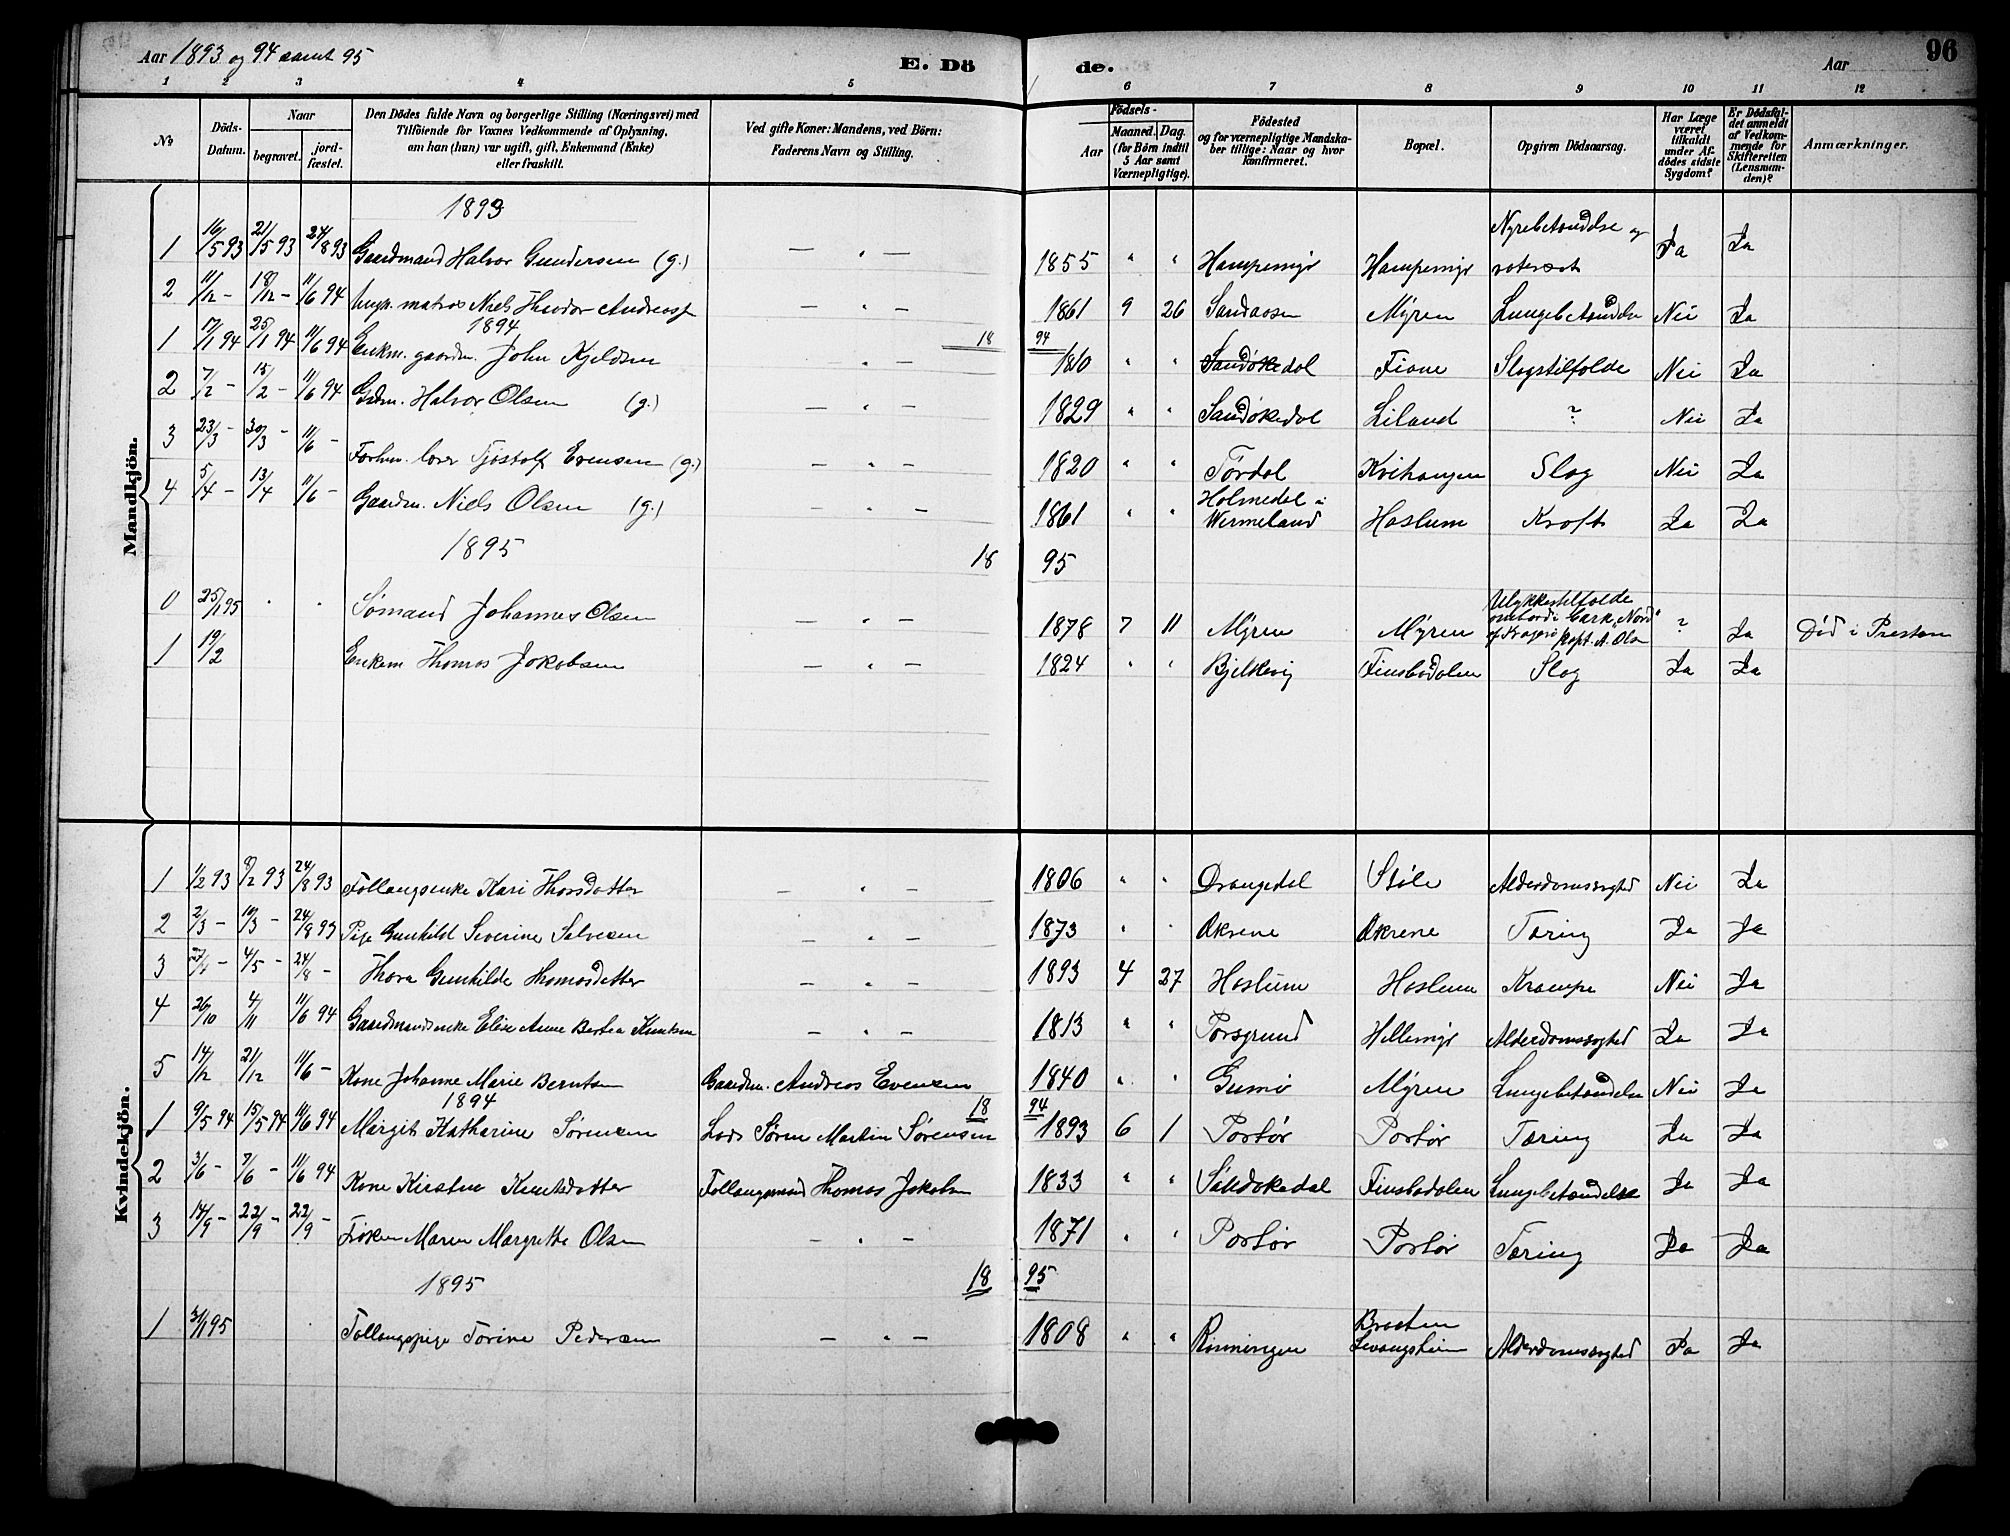 Aar 1893 og 94 samt 95
E. Dö
de.
Aar
96
1 2 3 4 5 6 7 8 9 10 11 12
No
Döds-Datum.
Naar
begravet.
jord-fæstet.
Den Dödes fulde Navn og borgerlige Stilling (Næringsvei) med
Tilföiende for Voxnes Vedkommende af Oplysning,
om han (hun) var ugift, gift, Enkemand (Enke)
eller fraskilt.
Ved gifte Koner: Mandens, ved Börn:
Faderens Navn og Stilling.
Födsels-
Aar
Maaned. Dag.
(for Börn indtil
5 Aar samt
Værnepligtige).
Födested
og for værnepligtige Mandska-
ber tillige: Naar og hvor
konfirmeret.
Bopæl.
Opgiven Dödsaarsag.
Har Læge
været
tilkaldt
under Af-
dödes sidste
Sygdom?
Er Dödsfal-
det anmeldt
af Vedkom-
mende for
Skifteretten
(Lensman-
den)?
Anmærkninger.
Mandkjön.
1893
1 16/5 93 21/5 93 24/8 93 Gaardmand Halvor Gundersen (g.) — " — 1855 " " Hampemyr Hampemyr Nyrebetændelse og Ja Ja
2 11/12 - 18/12 - 11/6 94 matros Niels Theodor — " — 1861 9 26 Myren Lungebetændelse Nei Ja
1894 18 94
1 17/1 94 25/1 94 11/6 94 Enkm. gaardm. John Kjeldsen " — 1810 " " Sandøkedal Fione Slagtilfælde Nei Ja
2 7/2 - 15/2 - 11/6 94 Gdm. Halvor Olsen (g.) — " — 1829 " " Sandøkedal Liland ? Nei Ja
3 23/3 - 30/3 - 11/6 - Evensen (g.) — " — 1820 " " Tørdal Slag Nei Ja
4 5/4 - 13/4 11/6 - Gaardm. Niels Olsen (g.) — " — 1861 " " Holmedal i Wermeland Haslum Kræft Ja Ja
1895 18 95
0 25/1 95 " " Sømand Johannes Olsen — " — 1878 7 11 Myren Myren Ulykkestilfælde ombord i bark "Nord" kapt. A. Olsen ? Ja Død i Preston
1 19/2 Enkem Thomas Jakobsen — " — 1824 " " Bjelkevig Finsbodalen Slag Ja Ja
Kvindekjön.
1 1/2 93 9/2 93 24/8 93 Føllaugsenke Kari Thorsdatter — " — 1806 " " Drangedal Støle Alderdomssvaghed Nei Ja
2 2/3 - 10/3 - 24/8 93 Pige Gunhild Severine Salvesen — " — 1873 " " Økrene Økrene Tæring Ja Ja
3 27/4 - 4/5 - 24/8 - Thora Gunhilde Thomasdatter — " — 1893 4 27 Haslum Haslum Krampe Nei Ja
4 26/10 4/11 11/6 94 Gaardmandsenke Elise Anne Bertea Knutsen — " — 1813 " " Porsgrund Hellemyr Alderdomssvaghed Ja Ja
5 14/12 21/12 11/6 - Kone Johanne Marie Berntsen Gaardm. Andreas Evensen 1840 " " Gumø Myren Lungebetændelse Nei Ja
1894 18 94
1 9/5 94 15/5 94 11/6 94 Margit Katharine Sørensen Lods Søren Martin Sørensen 1893 6 1 Portør Portør Tæring Ja Ja
2 3/6 - 7/6 - 11/6 94 Kone Kirstine Knutsdatter Føllaugsmand Thomas Jakobsen 1833 " " Sandøkedal Finsbodalen Lungebetændelse Ja Ja
3 14/9 - 22/9 - 22/9 - Frøken Maren Margrethe Olsen — " — 1871 " " Portør Portør Tæring Ja Ja
1895 18 95
1 31/1 95 Føllaugspige Torine Pedersen — " — 1808 " " Rønningen Braaten Alderdomssvaghed Ja Ja